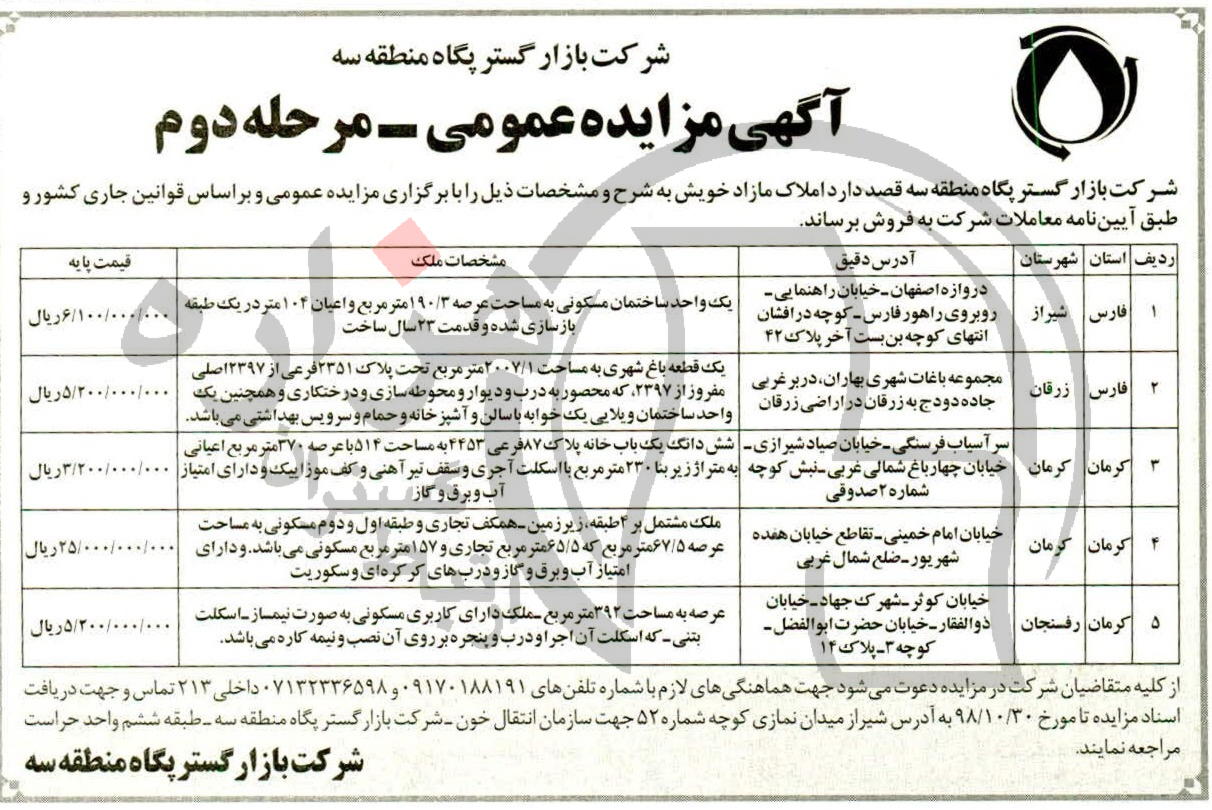 شرکت بازار گستر پگاه منطقه سه
آگهی مزایده عمومی ـ مرحله دوم
شرکت بازار گستر پگاه منطقه سه قصد دارد املاک مازاد خویش به شرح و مشخصات ذیل را با برگزاری مزایده عمومی و بر اساس قوانین جاری کشور و
طبق آیین‌نامه معاملات شرکت به فروش برساند.
ردیف استان شهرستان آدرس دقیق مشخصات ملک قیمت پایه
۱ فارس شیراز
دروازه اصفهان ـ خیابان راهنمایی ـ
روبروی راهور فارس ـ کوچه درافشان
انتهای کوچه بن بست آخر پلاک ۴۲
یک واحد ساختمان مسکونی به مساحت عرصه ۱۹۰/۳ مترمربع و اعیان ۱۰۴ متر در یک طبقه
بازسازی شده و قدمت ۲۳ سال ساخت
۶/۱۰۰/۰۰۰/۰۰۰ ریال
۲ فارس زرقان
مجموعه باغات شهری بهاران، در بر غربی
جاده دودج به زرقان در اراضی زرقان
یک قطعه باغ شهری به مساحت ۲۰۰۷/۱ متر مربع تحت پلاک ۲۳۵۱ فرعی از ۲۳۹۷ اصلی
مفروز از ۲۳۹۷، که محصور به درب و دیوار و محوطه سازی و درختکاری و همچنین یک
واحد ساختمان ویلایی یک خوابه با سالن و آشپزخانه و حمام و سرویس بهداشتی می‌باشد.
۵/۲۰۰/۰۰۰/۰۰۰ ریال
۳ کرمان کرمان
سرآسیاب فرسنگی ـ خیابان صیاد شیرازی ـ
خیابان چهارباغ شمالی غربی ـ نبش کوچه
شماره ۲ صدوقی
شش دانگ یک باب خانه پلاک ۸۷ فرعی ۴۴۵۳ به مساحت ۵۱۴ با عرصه ۳۷۰ متر مربع اعیانی
به متراژ زیر بنا ۲۳۰ متر مربع با اسکلت آجری و سقف تیر آهنی و کف موزاییک و دارای امتیاز
آب و برق و گاز
۳/۲۰۰/۰۰۰/۰۰۰ ریال
۴ کرمان کرمان
خیابان امام خمینی ـ تقاطع خیابان هفده
شهریور ـ ضلع شمال غربی
ملک مشتمل بر ۴ طبقه، زیرزمین ـ همکف تجاری و طبقه اول و دوم مسکونی به مساحت
عرصه ۶۷/۵ مترمربع که ۶۵/۵ مترمربع تجاری و ۱۵۷ مترمربع مسکونی می‌باشد. و دارای
امتیاز آب و برق و گاز و درب‌های کرکره‌ای و سکوریت
۲۵/۰۰۰/۰۰۰/۰۰۰ ریال
۵ کرمان رفسنجان
خیابان کوثر ـ شهرک جهاد ـ خیابان
ذوالفقار ـ خیابان حضرت ابوالفضل ـ
کوچه ۳ ـ پلاک ۱۴
عرصه به مساحت ۳۹۲ متر مربع ـ ملک دارای کاربری مسکونی به صورت نیمساز ـ اسکلت
بتنی ـ که اسکلت آن اجرا و درب و پنجره بر روی آن نصب و نیمه کاره می‌باشد.
۵/۲۰۰/۰۰۰/۰۰۰ ریال
از کلیه متقاضیان شرکت در مزایده دعوت می‌شود جهت هماهنگی‌های لازم با شماره تلفن‌های ۰۹۱۷۰۱۸۸۱۹۱ و ۰۷۱۳۲۳۳۶۵۹۸ داخلی ۲۱۳ تماس و جهت دریافت
اسناد مزایده تا مورخ ۹۸/۱۰/۳۰ به آدرس شیراز میدان نمازی کوچه شماره ۵۲ جهت سازمان انتقال خون ـ شرکت بازار گستر پگاه منطقه سه ـ طبقه ششم واحد حراست
مراجعه نمایند.
شرکت بازار گستر پگاه منطقه سه
هزاره